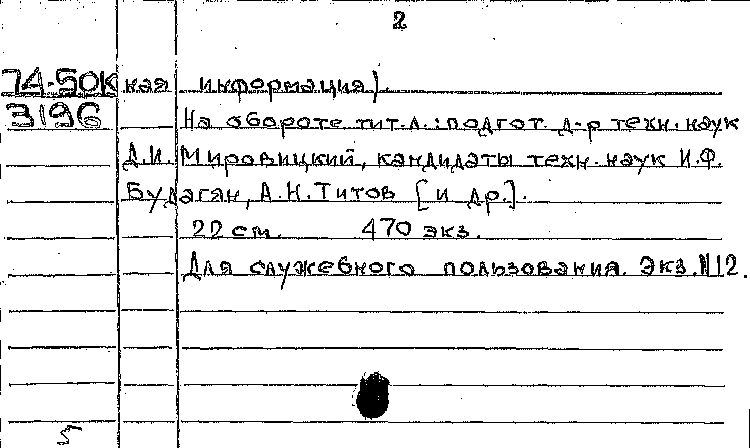 2
74-50К ная информация).
3196 На обороте тит.л.: подгот. д-р техн. наук
Д.И. Мировицкий, кандидаты техн. наук И.Ф.
Будагян, А.Н. Титов [и др.].
22 см. 470 экз.
Для служебного пользования. Экз. N12.